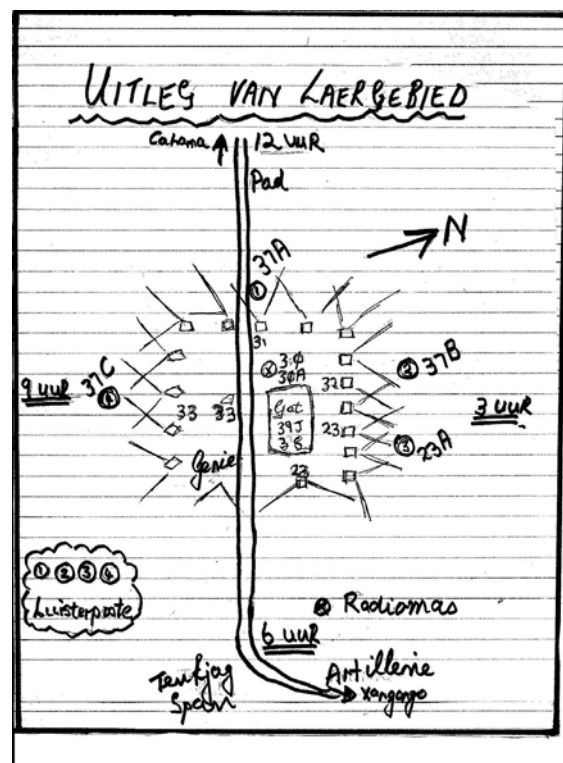 UITLEG VAN LAERGEBIED
Cahama
12 UUR
Pad
N
37A
①
31
3:0
30A
② 37B
37C
④
9 UUR
32
33 33
Gat
39J
38
3 UUR
23
③ 23A
Genie
23
① ② ③ ④
Luisterposte
Radiomas
6 UUR
Tenkjag
Span
Artillerie
Xangongo